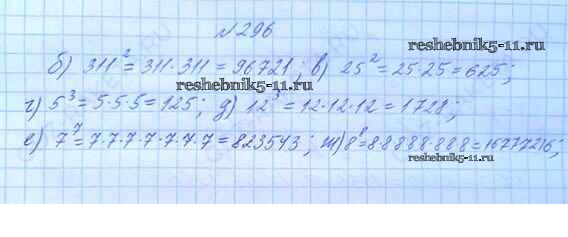 №296
reshebnik5-11.ru
б) 311² = 311·311 = 96721; в) 25² = 25·25 = 625;
reshebnik5-11.ru
г) 5³ = 5·5·5 = 125; д) 12³ = 12·12·12 = 1728;
е) 7⁷ = 7·7·7·7·7·7·7 = 823543; ж) 8⁸ = 8·8·8·8·8·8·8·8 = 16777216;
reshebnik5-11.ru